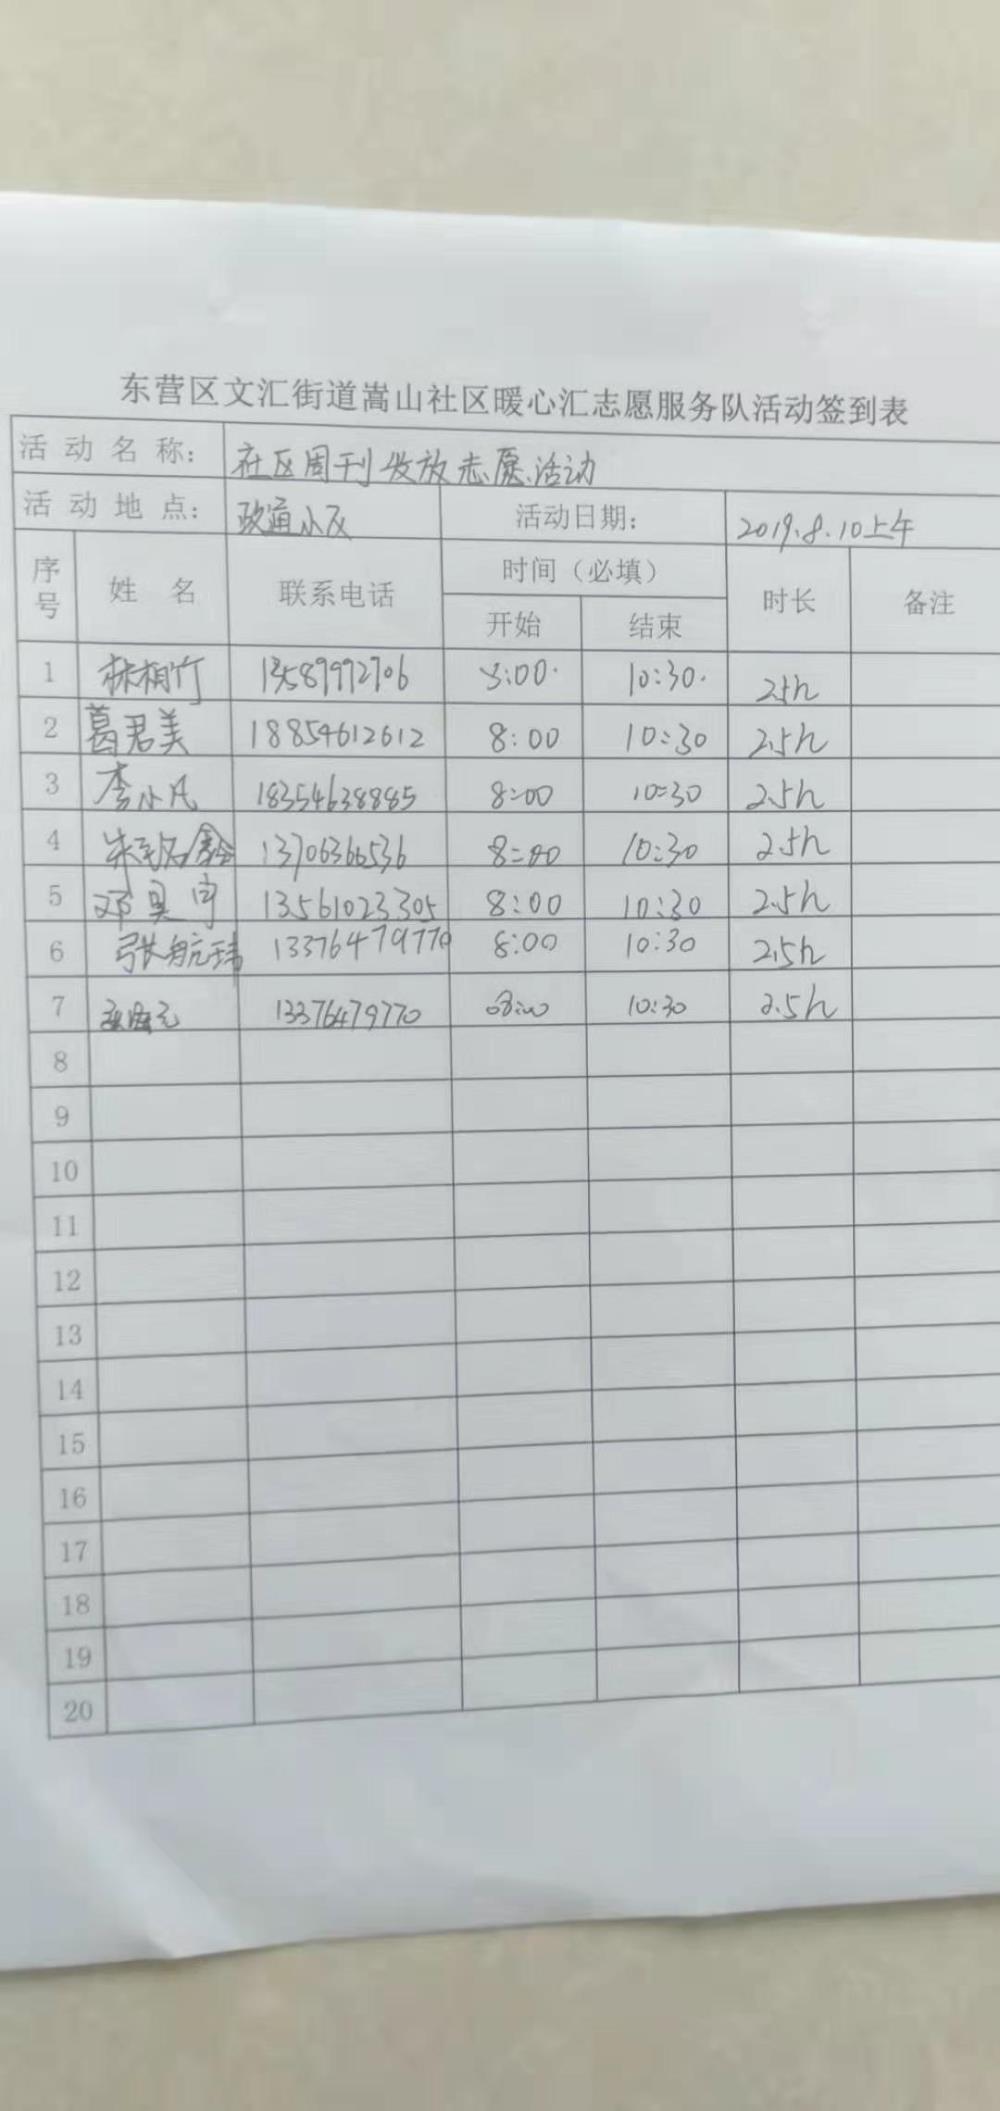 东营区文汇街道嵩山社区暖心汇志愿服务队活动签到表
活动名称： 社区周刊发放志愿活动
活动地点： 政通小区 活动日期： 2019.8.10上午
序号 姓名 联系电话 时间（必填） 时长 备注
开始 结束
1 林相竹 13589992706 8:00 10:30 2.5h
2 葛君美 18854612612 8:00 10:30 2.5h
3 李小凡 18354638885 8:00 10:30 2.5h
4 13706366536 8:00 10:30 2.5h
5 邓昊宇 13561023305 8:00 10:30 2.5h
6 张航玮 13376479770 8:00 10:30 2.5h
7 13376479770 08:00 10:30 2.5h
8
9
10
11
12
13
14
15
16
17
18
19
20